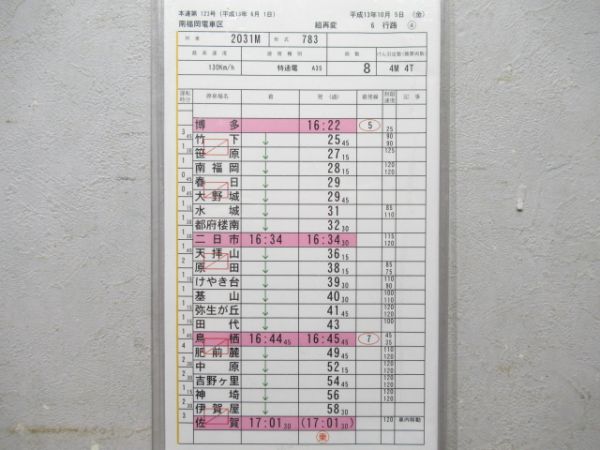 本運第 123号 (平成13年 6月 1日) 平成13年10月 5日 (金)
南福岡電車区 超再変 6 行路 ④
列車 2031M 形式 783
最高速度 速度種別 両数 けん引定数(換算両数)
130Km/h 特通電 A35 8 4M 4T
運転時分 停車場名 着 発 (通) 着発線 制限速度 記事
博多 16:22 ⑤ 25
3 45 竹下 ↓ 25 45 90 90
笹原 ↓ 27 15 125
南福岡 ↓ 28 15 120 120
春日 ↓ 29
大野城 ↓ 29 45
水城 ↓ 31 85 110
都府楼南 ↓ 32 30
二日市 16:34 16:34 30 115 120
天拝山 ↓ 36 15
原田 ↓ 38 15 85 75
けやき台 ↓ 39 30
基山 ↓ 40 30
弥生が丘 ↓ 41 45
田代 ↓ 43 100
鳥栖 16:44 45 16:45 45 ⑦ 45 35
肥前麓 ↓ 49 45
中原 ↓ 52 15
吉野ヶ里 ↓ 54 45
神埼 ↓ 56
伊賀屋 ↓ 58 30
佐賀 17:01 30 (17:01 30) 120 車内移動
乗